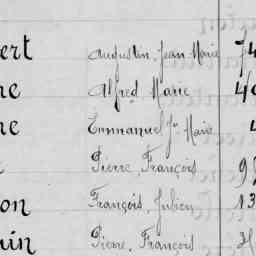 ert Augustin Jean Marie 74
ne Alfred Marie 40
ne Emmanuel Jn Marie 4
Pierre, François 9
on François, Julien 13
uin Pierre, François 3